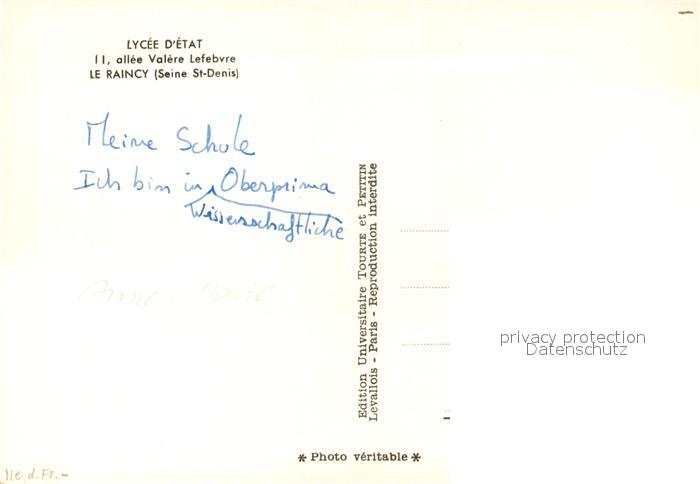 LYCÉE D'ÉTAT
11, allée Valère Lefebvre
LE RAINCY (Seine St-Denis)
Meine Schule
Ich bin in Oberprima
Wissenschaftliche
Anne-Marie
Edition Universitaire TOURTE et PETITIN
Levallois - Paris - Reproduction interdite
privacy protection
Datenschutz
* Photo véritable *
Ile d. Fr. -